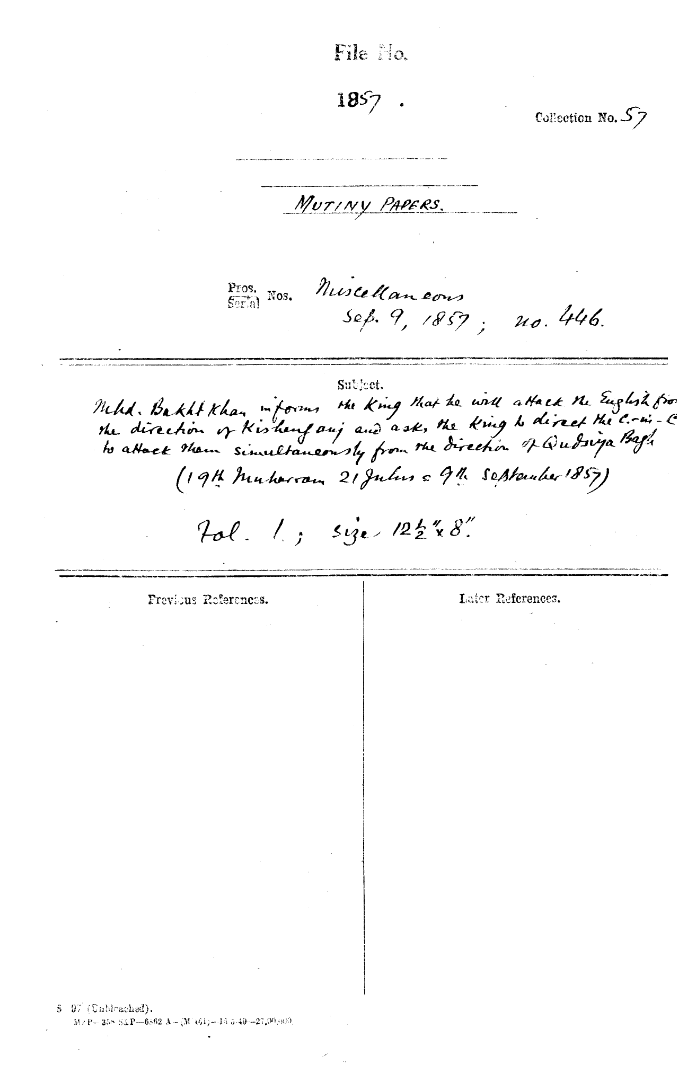 File No.
1857 .
Collection No. 57
MUTINY PAPERS.
Pros.
Serial Nos. Miscellaneous
Sep. 9, 1857 ; no. 446.
Subject.
Mhd. Bakht Khan informs the King that he will attack the English fro
the direction of Kishenganj and asks the King to direct the C.-in-C
to attack them simultaneously from the direction of Qudsiya Bagh
(19th Muharram 21 Julus = 9th September 1857)
Fol. 1 ; size 12½" x 8".
Previous References.
Later References.
S 97 (Unbleached).